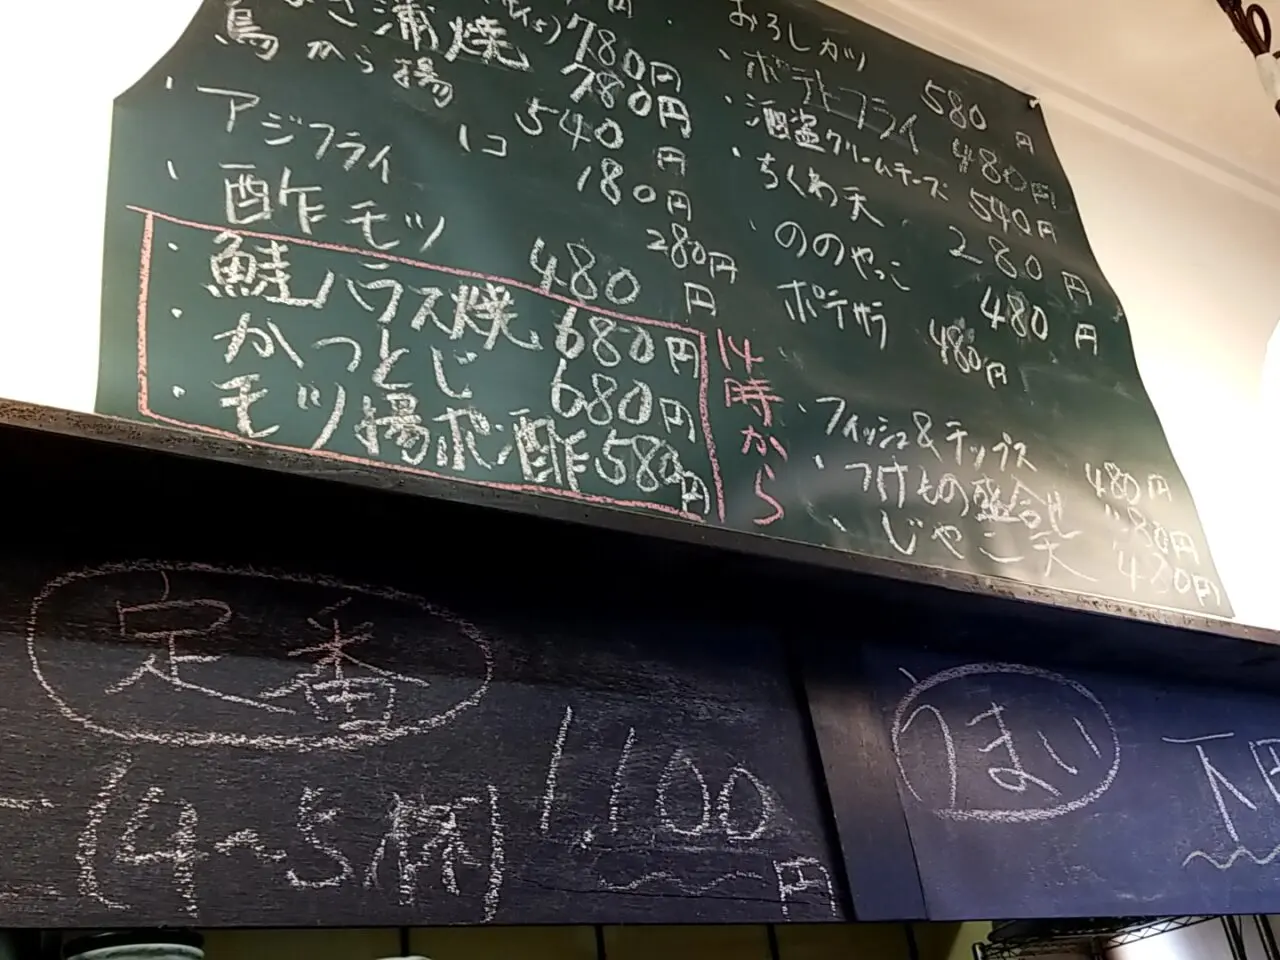 蒲焼 780円
鳥から揚 780円
アジフライ 1コ 540円
180円
酢モツ 280円
480円
鮭ハラス焼 680円
かつとじ 680円
モツ揚ポン酢 580円
14時から
おろしカツ 580円
ポテトフライ 480円
酒盗クリームチーズ 540円
ちくわ天 280円
ののやっこ 480円
ポテサラ 480円
フィッシュ&チップス 480円
つけもの盛合せ 80円
じゃこ天 430円
定番
(4~5杯) 1,100円
うまい